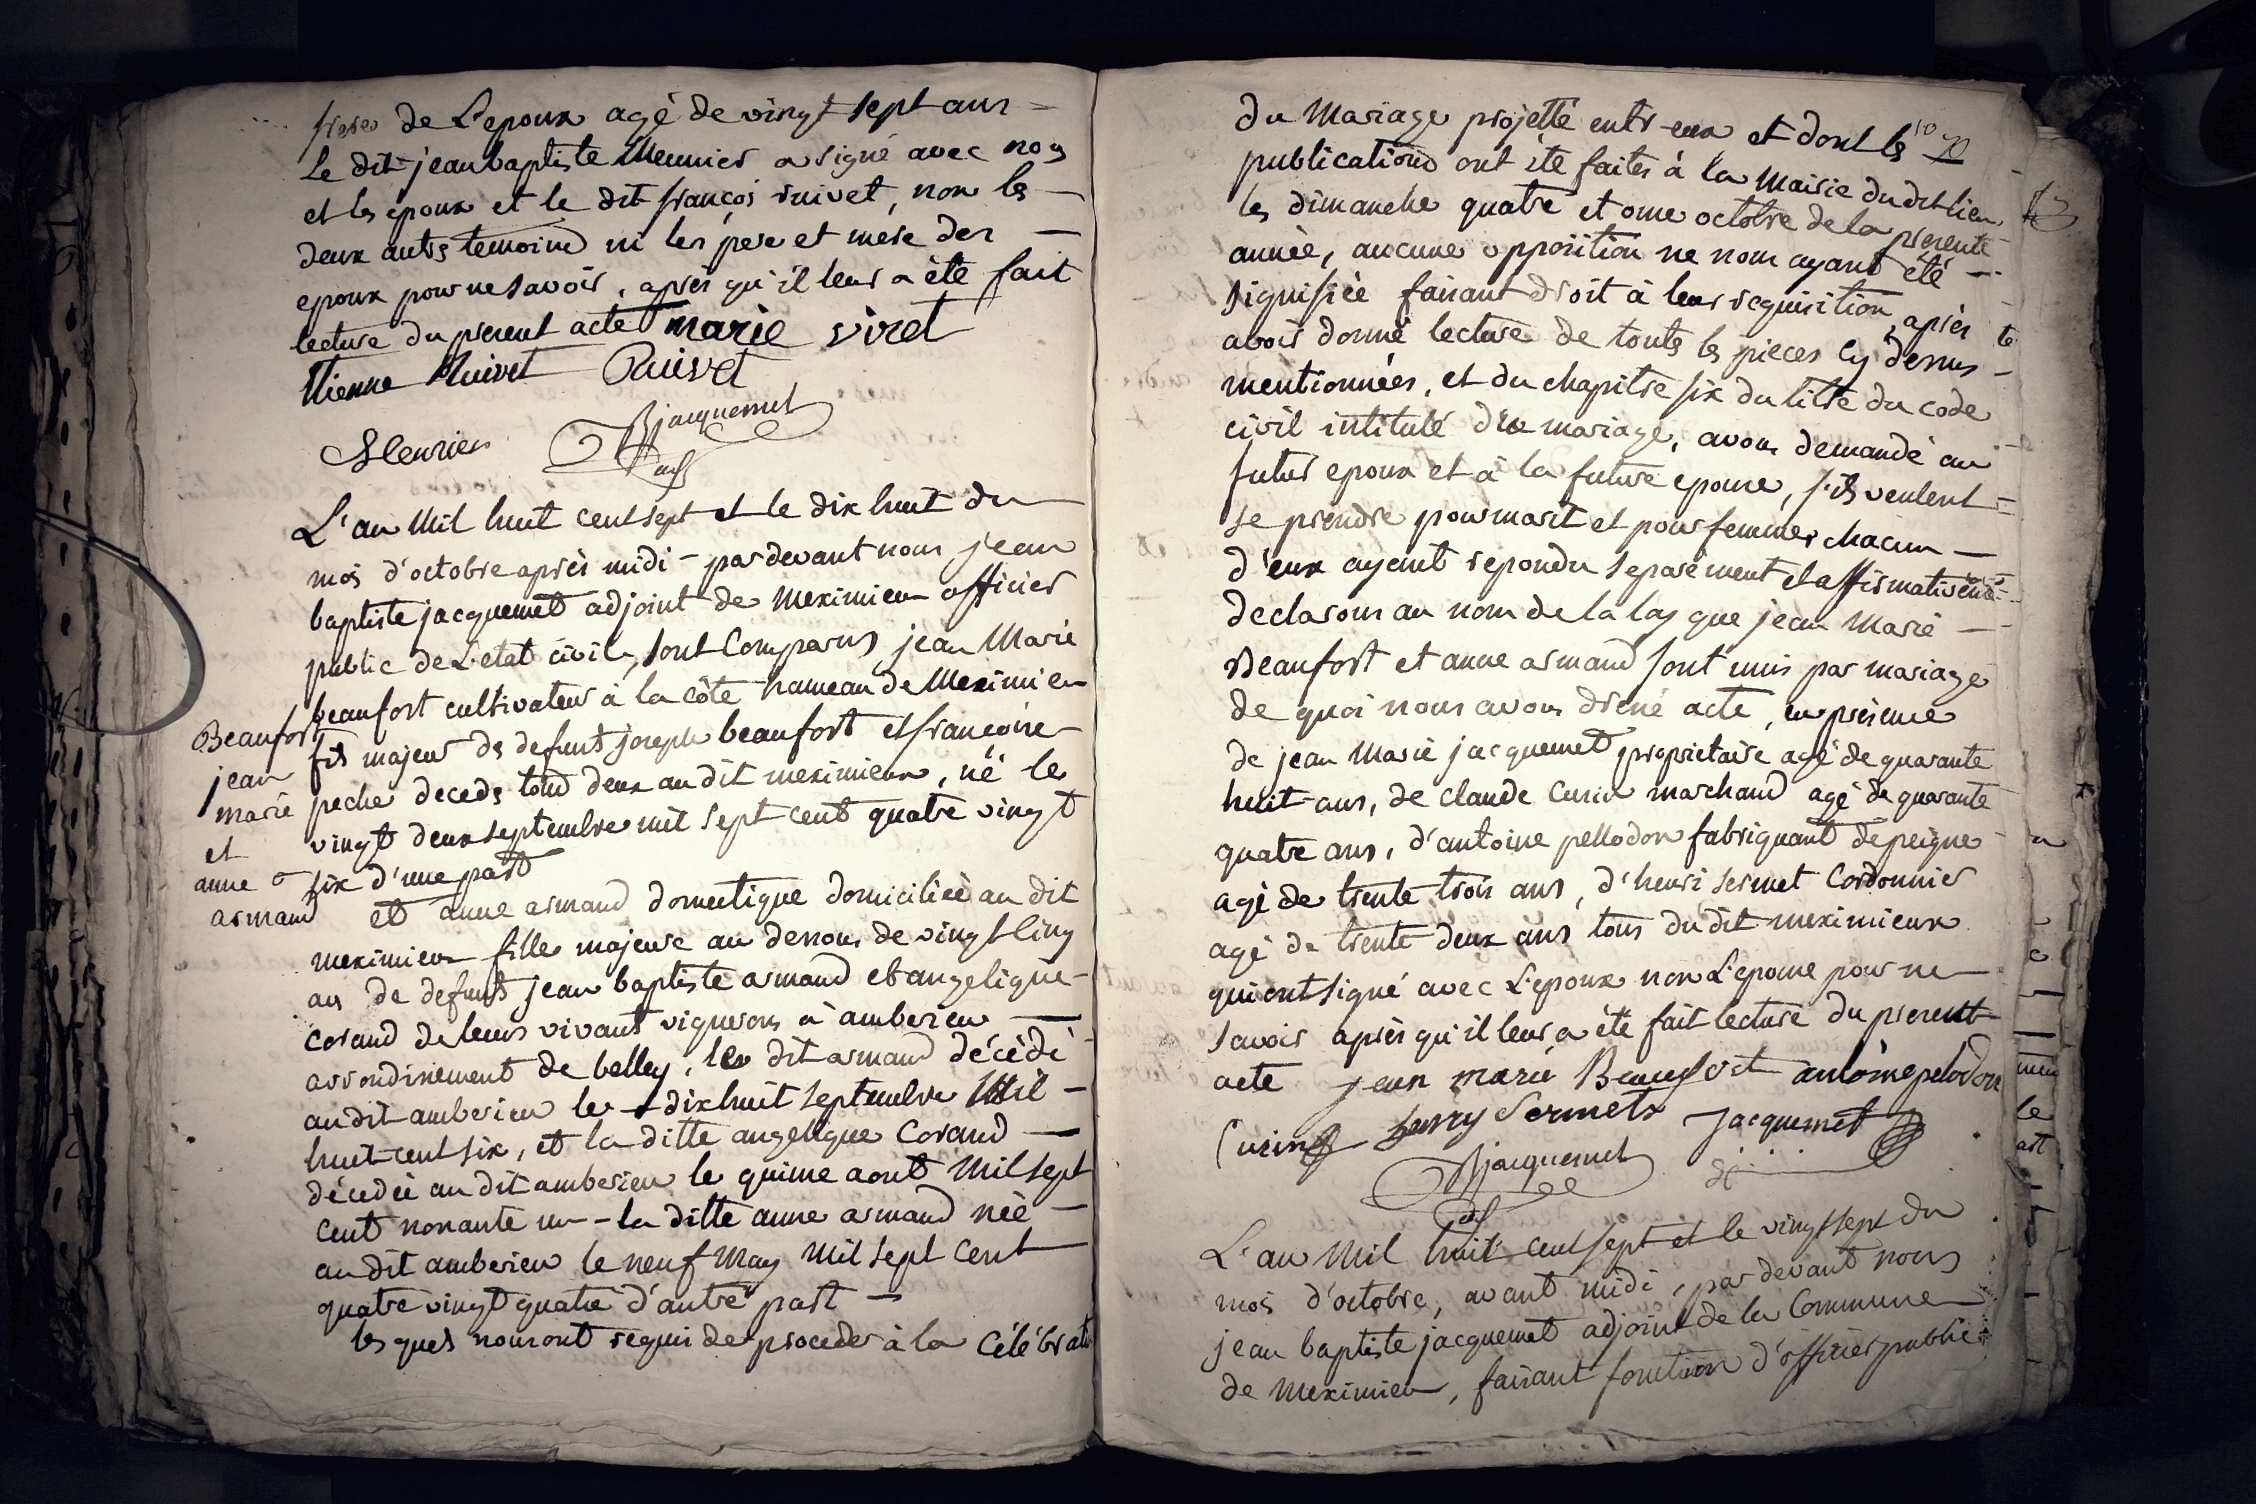 frere de L'epoux agé de vingt sept ans
Le dit jean baptiste Meunier a signé avec nous
et les epoux et le dit françois ruivet, non les
deux autrs temoins ni les pere et mere des
epoux pour ne savoir, après qu'il leur a été fait
lecture du present acte marie viret
Etienne Ruivet Ruivet
Meunier Bjacquemet
adj
L'an Mil huit cent sept et le dix huit du
mois d'octobre après midi - par devant nous jean
baptiste jacquemet adjoint de meximieu officier
public de L'etat civil, sont Comparus jean Marie
beaufort cultivateur à la côte hameau de Meximieu
fils majeur de defunt joseph beaufort et francoise
peche decedes tous deux au dit meximieux, né le
vingt deux septembre mil sept cent quatre vingt
six d'une part
Beaufort
jean
marie
et
anne
armand
et anne armand domestique domiciliée au dit
meximieux fille majeure au dessous de vingt cinq
ans de defunts jean baptiste armand et angelique
corand de leurs vivant vignerons à amberieu
arrondissement de belley, le dit armand décédé
au dit amberieu le dix huit septembre Mil
huit cent six, et la ditte angelique Corand
décedée au dit amberieu le quinze aout Mil sept
cent nonante un - la ditte anne armand née
au dit amberieu le neuf May Mil sept Cent
quatre vingt quatre d'autre part
les quels nous ont requis de proceder à la Célébrat
10
du Mariage projetté entr-eux et dont les
publications ont été faites à la Mairie du dit lieu
les dimanche quatre et onze octobre de la presente
année, aucune opposition ne nous ayant été
signifiée faisant droit à leur requisition, après
avoir donné lecture de toutes les pieces cy dessus
mentionnées, et du chapitre six du titre du code
civil intitulé du mariage, avons demandé au
futur epoux et à la future epouse, s'ils veulent
se prendre pour mari et pour femme chacun
d'eux ayant repondu separément et affirmativemt
declarons au nom de la loy que jean Marie
Beaufort et anne armand sont unis par mariage
de quoi nous avons dressé acte, en présence
de jean Marie jacquemet proprietaire agé de quarante
huit ans, de claude Cusin marchand agé de quarante
quatre ans, d'antoine pellodon fabriquant de peigne
agé de trente trois ans, d'henri sermet Cordonnier
agé de trente deux ans tous du dit meximieux
qui ont signé avec L'epoux non L'epouse pour ne
savoir après qu'il leur a été fait lecture du present
acte jean marie Beaufort antoine pelodon
Cusin henry Sermet Jacquemet
Bjacquemet
adj
L'an Mil huit cent sept et le vingt sept du
mois d'octobre, avant midi, par devant nous
jean baptiste jacquemet adjoint de la Commune
de Meximieu, faisant fonction d'officier public